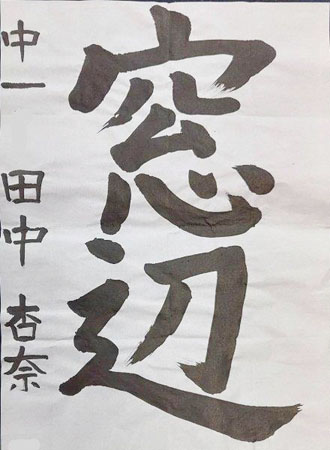 窓辺
中一 田中 杏奈